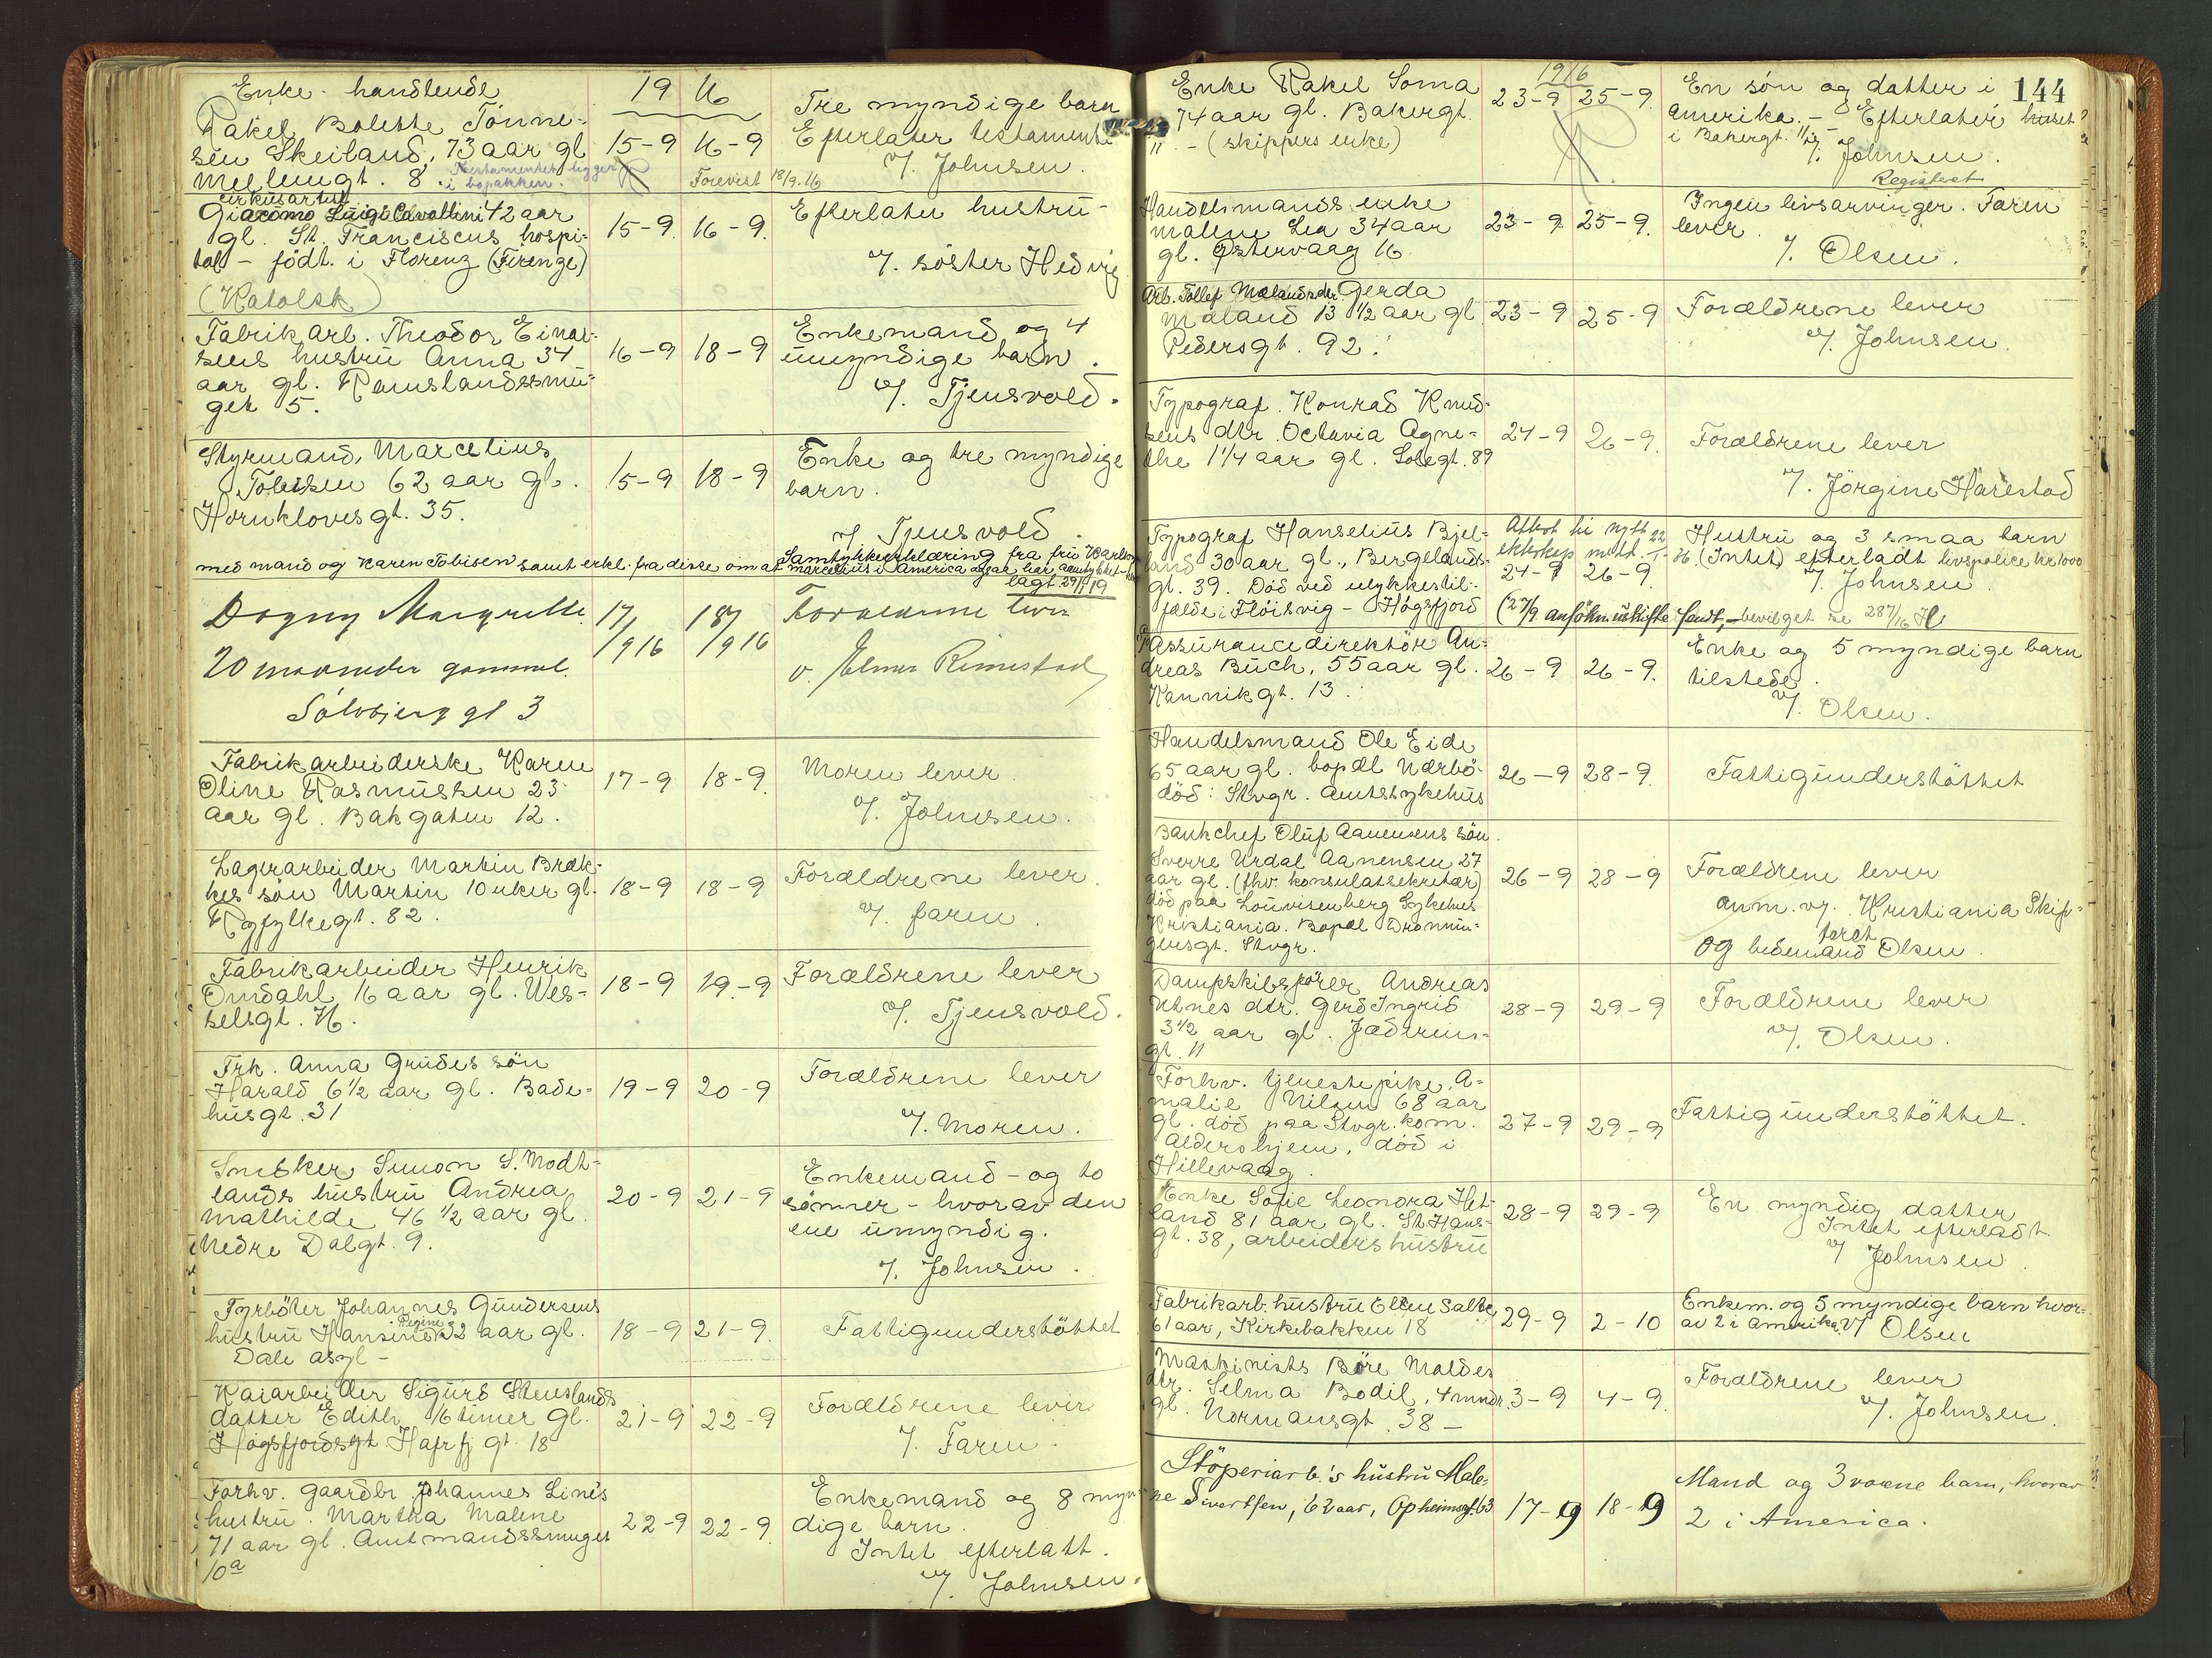 Enke - handlende
19 16
Rakel Bolette Tönne-
sen Skeiland, 73 aar gl
Mellemgt. 8. Testamentet ligger
i bopakken.
15-9 16-9
Forevist 18/9.16
Tre myndige barn
Efterlater testamente
v/. Johnsen.
cirkusartist
Giacomo Luigi Cavallini 42 aar
gl. St. Franciscus hospi-
tal - födt i Florenz (Firenze)
(Katolsk)
15-9. 16-9.
Efterlater hustru -
v/. söster Hedvig
Fabrikarb. Theodor Einar-
sens hustru Anna 34
aar gl. Ramslandssmu-
get 5.
16-9 18-9
Enkemand og 4
umyndige barn.
v/. Tjensvold.
Styrmand, Marcelius
Tobisen 62 aar gl.
Hornklovesgt. 35.
15-9 18-9
Enke og tre myndige
barn.
v/ Tjensvold.
Samtykkeerklæring fra fru
med mand og Karen Tobisen samt erkl. fra disse om at Marcelius i America ogsaa har samtykket
lagt 29/11 19
Dagny Margrethe
20 maaneder gammel.
Sölvbjerggt 3
17/9 16 18/9 16
Forældrene lever
v. Elmer Rimestad
Fabrikarbeiderske Karen
Oline Rasmussen 23
aar gl. Bakgaten 12.
17-9 18-9.
Moren lever.
v/. Johnsen.
Lagerarbeider Martin Bræk-
kes sön Martin 10 uker gl.
Ryfylkegt. 82.
18-9 18-9
Forældrene lever.
v/. faren.
Fabrikarbeider Henrik
Omdahl 16 aar gl. Wes-
selsgt. 16.
18-9 19-9
Forældrene lever
v/. Tjensvold.
Frk. Anna Grudes sön
Harald 6 1/2 aar gl. Bade-
husgt. 31
19-9 20-9
Forældrene lever
v/. Moren.
Snekker Simon S. Modt-
lands hustru Andrea
Mathilde 46 1/2 aar gl.
Nedre Dalgt. 9.
20-9 21-9
Enkemand - og to
sönner - hvorav den
ene umyndig.
v/. Johnsen.
Fyrböter Johannes Gundersens
hustru Hansine Regine 32 aar gl.
Dale asyl -
18-9 21-9.
Fattigunderstöttet
Kaiarbeider Sigurd Steneslands
datter Edith 16 timer gl.
Högsfjordsgt Hafrfj gt. 18
21-9 22-9
Forældrene lever
v/. Faren.
Forhv. gaardbr Johannes Lines
hustru. Martha Malene
71 aar gl. Amtmandssmuget
10a
22-9 22-9.
Enkemand og 8 myn-
dige barn.
Intet efterlatt.
v/. Johnsen.
144
1916
Enke Rakel Soma
74 aar gl. Bakergt.
11 - (skippers enke)
23-9 25-9.
En sön og datter i
Amerika. - Efterlater huset
i Bakergt. 11.
v/. Johnsen.
Registrert
Handelsmands enke
Malene Lea 34 aar
gl. Östervaag 16
23-9 25-9.
Ingen livsarvinger. Faren
lever.
v/. Olsen.
Arb. Tollef Mælands dtr. Gerda
Mæland 13 1/2 aar gl.
Pedersgt. 92.
23-9 25-9
Forældrene lever
v/. Johnsen.
Typograf. Konrad Knud-
sens dtr. Octavia Agne-
the 1 1/4 aar gl. Solegt. 89
24-9 26-9.
Forældrene lever
v/. Jörgine Harestad
Typograf Hanselius Bjel-
land 30 aar gl., Bergelands-
gt. 39. Död ved ulykkestil-
fælde i Flöisvig - Högsfjord
Attest til nytt
ekteskap
24-9 26-9.
Hustru og 3 smaa barn
(Intet) efterladt livspolice kr 1000
v/. Johnsen
(27/9 ansökn. uskifte sendt, - bevilget se 287/16
Assurancedirektör An-
dreas Buch, 55 aar gl.
Kannikgt. 13.
26-9 26-9.
Enke og 5 myndige barn
tilstede.
v/. Olsen.
Handelsmand Ole Eide
65 aar gl. bopæl Nærbö-
död: Stvgr. Amtssykehus
26-9 28-9.
Fattigunderstöttet
Bankchef Oluf Aanensens sön
Sverre Urdal Aanensen 27
aar gl. (fhv. konsulatsekretær)
död paa Louvisenberg Sykehus
Kristiania. Bopæl Dronnin-
gensgt. Stvgr.
26-9 28-9
Forældrene lever
anm. v/. Kristiania Skif-
teret
og bedemand Olsen.
Dampskibsförer Andreas
Utnes dtr. Gerd Ingrid
3 1/2 aar gl. Jædereins-
gt. 11
28-9 29-9
Forældrene lever
v/. Olsen.
Forhv. tjenestepike. A-
malie Nilsen 68 aar
gl. död paa Stvgr. kom.
Aldershjem, död i
Hillevaag.
27-9 29-9
Fattigunderstöttet.
Enke Sofie Leonora Het-
land 81 aar gl. St. Hans-
gt. 38, arbeiders hustru
28-9 29-9
En myndig datter
Intet efterladt
v/ Johnsen.
Fabrikarb. hustru Ellen Salte
61 aar, Kirkebakken 18
29-9 2-10
Enkem. og 5 myndige barn hvor-
av 2 i Amerika. v/ Olsen
Maskinists Böre Moldes
dtr. Selma Bodil, 4 mndr.
gl. Normansgt. 38 -
3-9 4-9.
Forældrene lever
v/. Johnsen.
Stöperiarb.'s hustru Male-
ne Sivertsen, 62 aar, Opheimsgt. 63
17-9 18-9
Mand og 3 voxne barn, hvorav
2 i America.